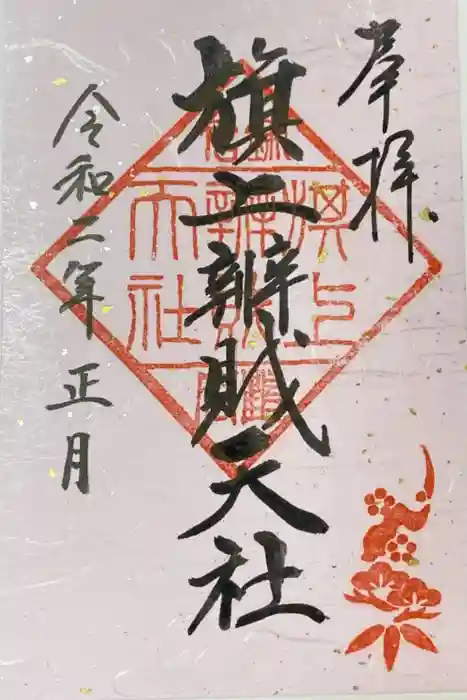 奉拝
旗上辨財天社
令和二年正月
旗上
辨財
天社